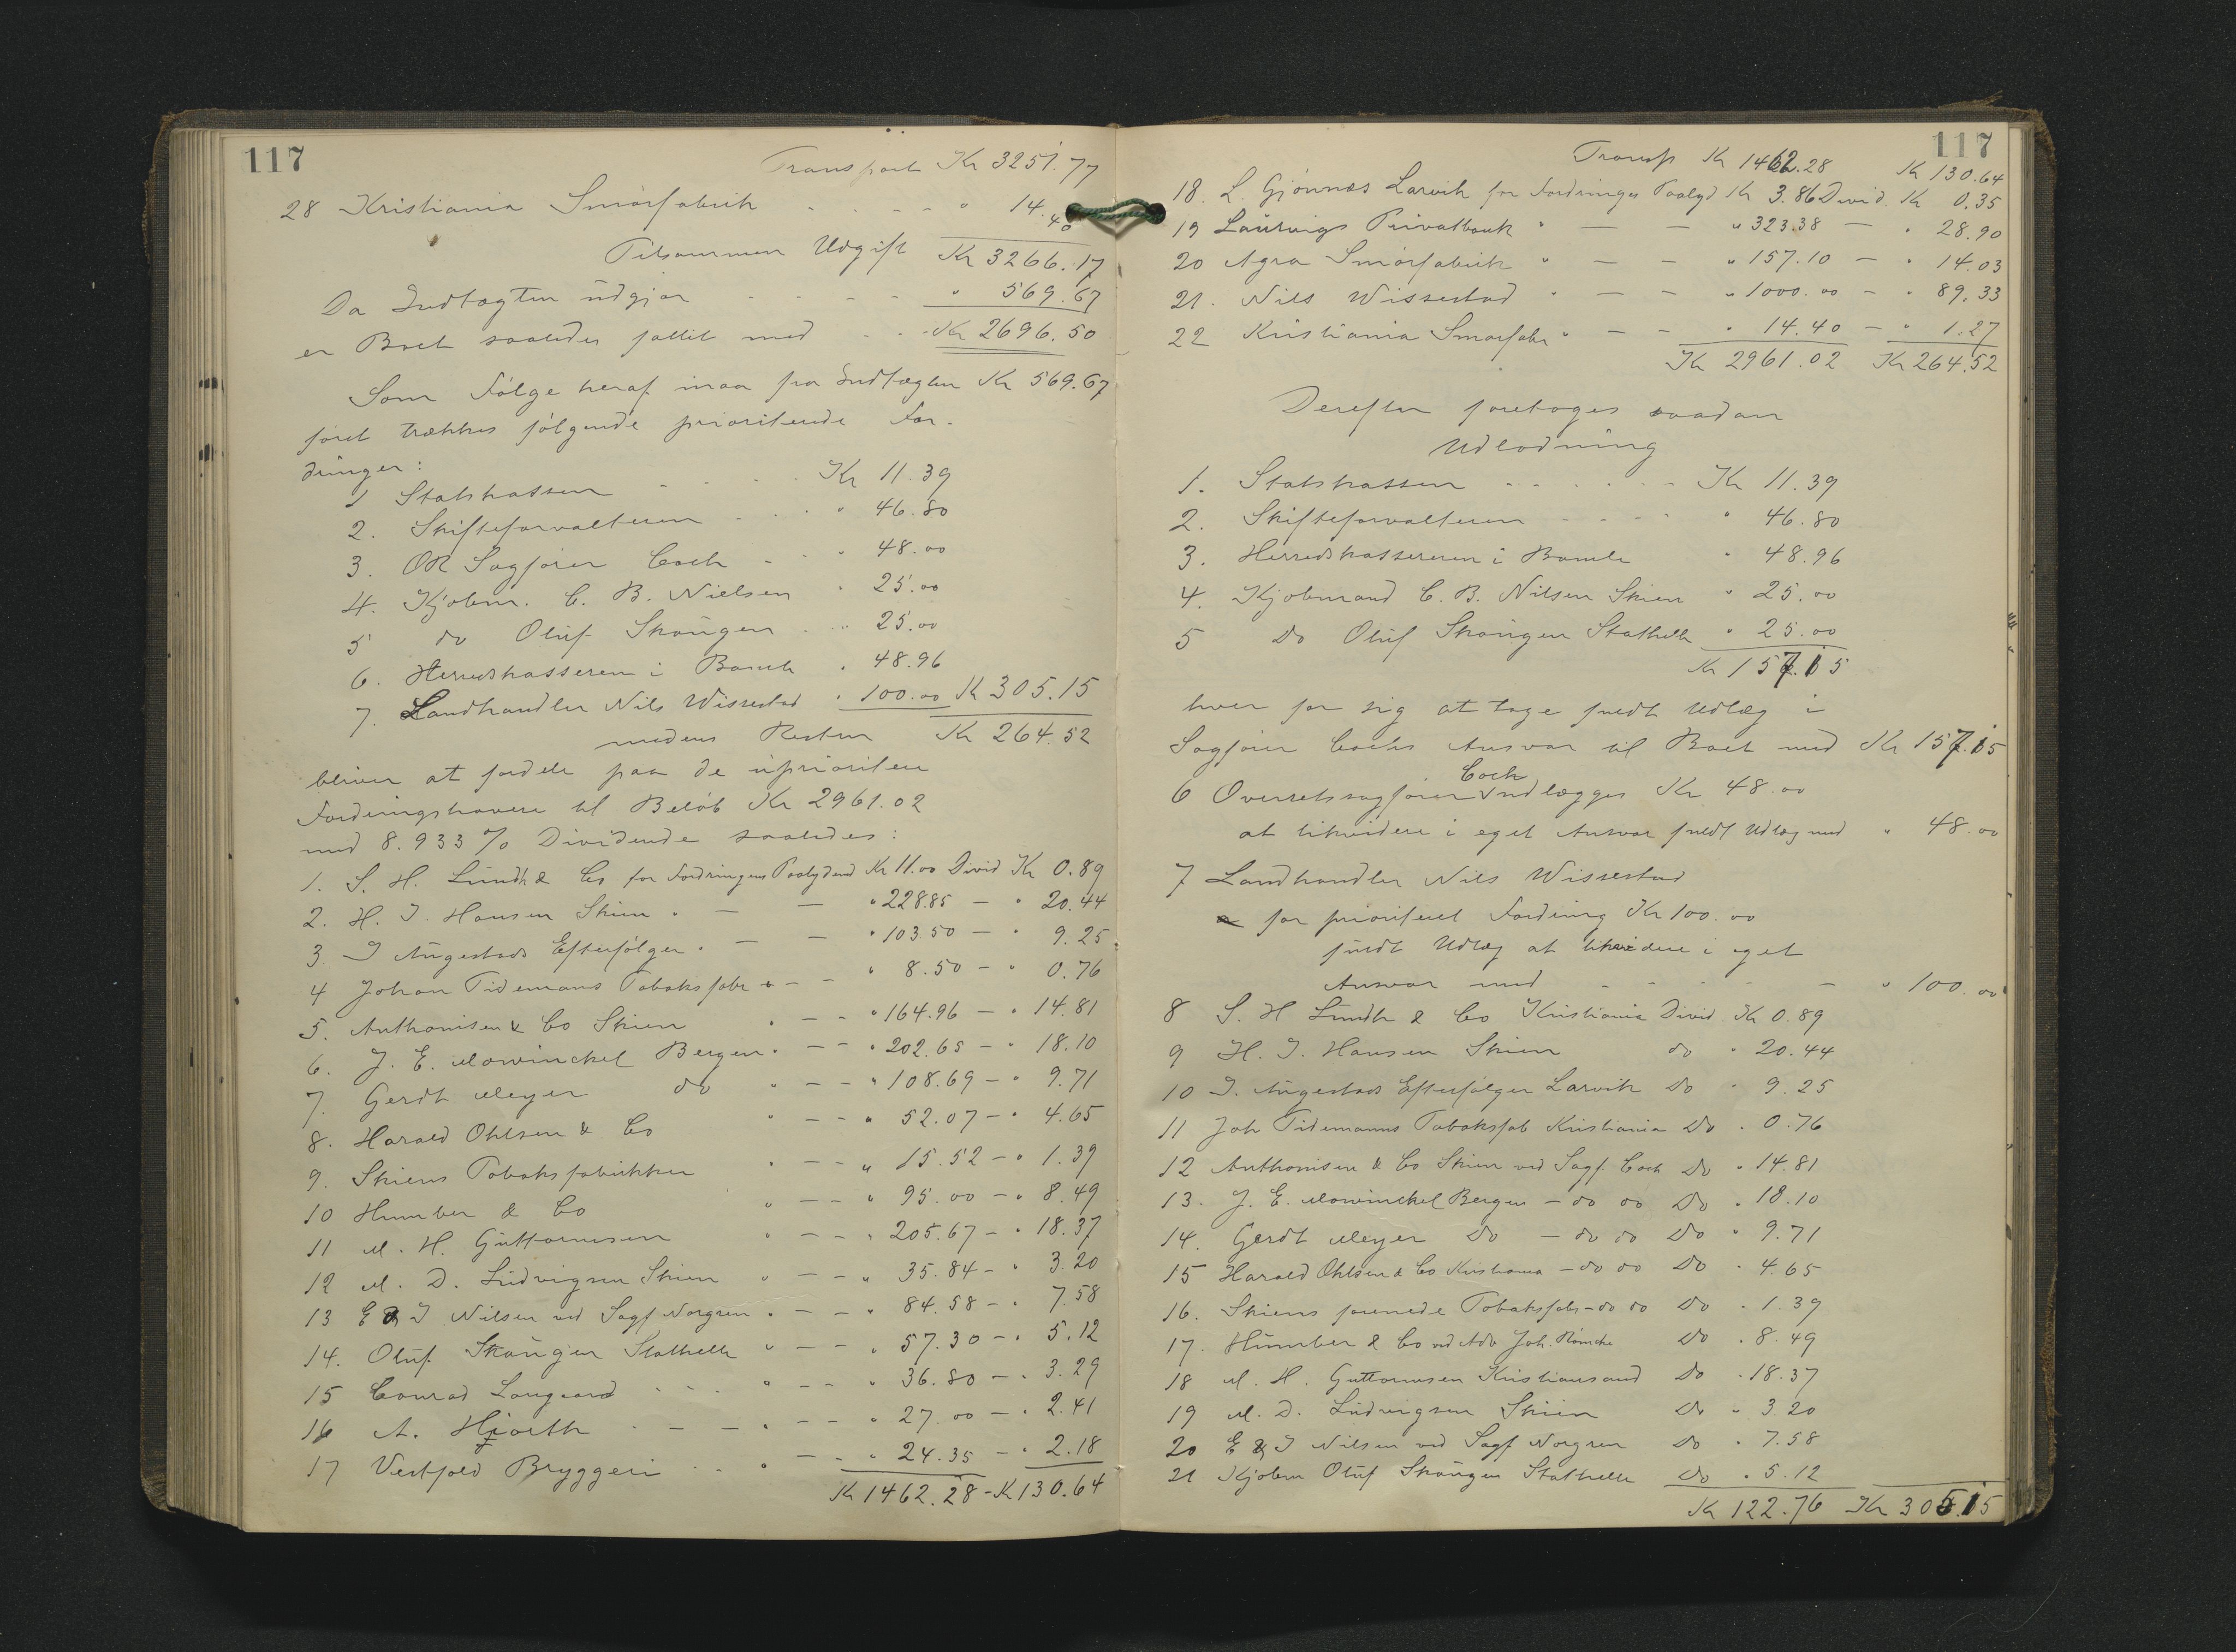 117
Transport Kr 3251.77
28 Kristiania Smørfabrik - - - - " 14.40
Tilsammen Udgift Kr 3266.17
Da Indtægten udgjør - - - - " 569.67
er Boet saaledes fallit med - - - Kr 2696.50
Som Følge heraf maa fra Indtægten Kr 569.67
først trækkes følgende prioriterede For-
dringer:
1 Statskassen - - - - Kr 11.39
2. Skifteforvalteren - - - " 46.80
3. OR Sagfører Coch - - " 48.00
4. Kjøbm. C. B. Nielsen " 25.00
5 do Oluf Skougen - " 25.00
6. Herredskasseren i Bamle " 48.96
7. Landhandler Nils Wissestad " 100.00 Kr 305.15
medens Resten Kr 264.52
bliver at fordele paa de uprioriterte
Fordringshavere til Beløb Kr 2961.02
med 8.933 % Dividende saaledes:
1. S. H. Lundh & Co for Fordringens Paalydend Kr 11.00 Divid Kr 0.89
2. H. J. Hansen Skien " — — " 228.85 — " 20.44
3. J Augestads Efterfølger " — — " 103.50 — " 9.25
4 Johan Tidemans Tobaksfabr " — — " 8.50 — " 0.76
5. Anthonisen & Co Skien " — — " 164.96 — " 14.81
6. J. E. Mowinckel Bergen " — — " 202.65 — " 18.10
7. Gerdt Meyer do " — — " 108.69 — " 9.71
8. Harald Ohlsen & Co " — — " 52.07 — " 4.65
9. Skiens Tobaksfabrikker " — — " 15.52 — " 1.39
10 Humber & Co " — — " 95.00 — " 8.49
11 M. H. Guttormsen " — — " 205.67 — " 18.37
12 M. D. Ludvigsen Skien " — — " 35.84 — " 3.20
13 E & J Nilsen ved Sagf Norgren " — — " 84.58 — " 7.58
14. Oluf Skougen Stathelle " — — " 57.30 — " 5.12
15 Conrad Langaard - - - " — — " 36.80 — " 3.29
16 A. Hjorth - — — " — — " 27.00 — " 2.41
17 Vestfold Bryggeri - - " — — " 24.35 — " 2.18
Kr 1462.28 - Kr 130.64
117
Transp Kr 1462.28 Kr 130.64
18. L. Gjønnes Larvik for Fordringes Paalyd Kr 3.86 Divid Kr 0.35
19 Laurvigs Privatbank " — — " 323.38 — " 28.90
20 Agra Smørfabrik " — — " 157.10 — " 14.03
21. Nils Wissestad " — — " 1000.00 — " 89.33
22 Kristiania Smørfabr " — — " 14.40 — " 1.27
Kr 2961.02 Kr 264.52
Derefter foretoges saadan
Udlodning
1. Statskassen - - - - - - Kr 11.39
2. Skifteforvalteren - - - - " 46.80
3. Herredskassereren i Bamle " 48.96
4. Kjøbmand C. B. Nilsen Skien " 25.00
5 Do Oluf Skougen Stathelle " 25.00
Kr 157.15
hver for sig at tage fuldt Udlæg i
Sagfører Cochs Ansvar til Boet med Kr 157.15
6 Overretssagfører Coch Undlægges Kr 48.00
at likvidere i eget Ansvar fuldt Udlæg med " 48.00
7 Landhandler Nils Wissestad
for prioriteret Fordring Kr 100.00
fuldt Udlæg at likvidere i eget
Ansvar med - - - - — " 100.00
8 S. H Lundh & Co Kristiania Divid. Kr 0.89
9 H. J. Hansen Skien do " 20.44
10 J. Augestads Efterfølger Larvik Do " 9.25
11 Joh Tidemanns Tobaksfab Kristiania Do " 0.76
12 Anthonisen & Co Skien ved Sagf. Coch Do " 14.81
13. J. E. Mowinckel Bergen - do do Do " 18.10
14. Gerdt Meyer Do - do do Do " 9.71
15 Harald Ohlsen & Co Kristiania - do do Do " 4.65
16. Skiens forenede Tobaksfabr - do do Do " 1.39
17. Humber & Co ved Adv Joh. Do " 8.49
18 M. H. Guttormsen Kristiansand Do " 18.37
19 M. D. Ludvigsen Skien Do " 3.20
20 E & J Nilsen ved Sagf Norgren Do " 7.58
21 Kjøbm Oluf Skougen Stathelle Do " 5.12
Kr 122.76 Kr 305.15